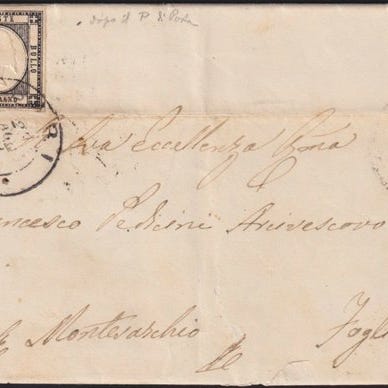 dopo il P. di Posta
BOLLO
RANO
Sua Eccellenza Rma
ncesco Pedicini Arcivescovo
Montesarchio Fogli